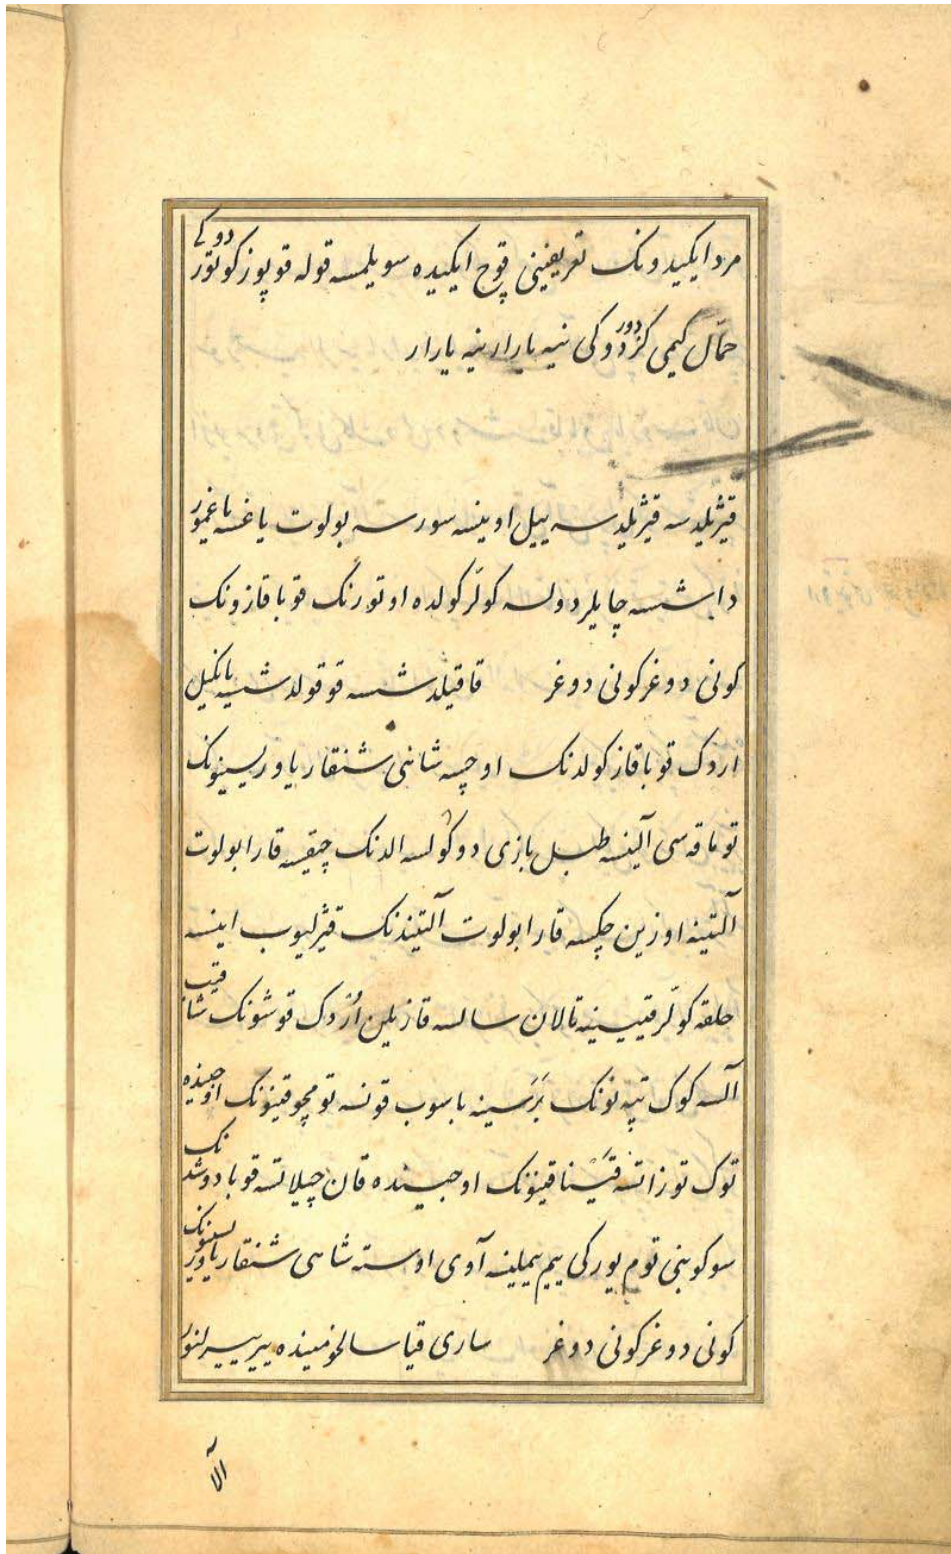 مرد ایکیدونک تعریفینی قوچ ایکیده سویلمسه قوله قوپوز کوتوردوکی
حمّال کیمی کزدوردوکی نیه یارار نیه یارار
قیژیلدسه قیژیلدسه ییل اوینسه سورسه بولوت یاغسه یاغمور
داشسه چایلر دولسه کولّر کولده اوتورنک قوبا قازونک
کونی دوغر کونی دوغر قاقیلدشسه قوقولدشسه یانکیل
اردک قوبا قاز کولدنک اوچسه شانی شنقار یاوریسینونک
توماقه سی آلینسه طبل بازی دوکولسه الدنک چیقسه قارا بولوت
آلتینه اوزین چکسه قارا بولوت آلتیندنک قیژلیوب اینسه
حلقه کولّر قتیینه تالان سالسه قاز یلین اُرْدک قوشونک شاقیب
آلسه کوک تپه نونک بَرَسینه باسوب قونسه تومچوقینونک اوجینده
توک توزاتسه قیَناقینونک اوجینده قان چیلاتسه قوبا دوشدنک
سوکوبنی توم یورکی ییم ییملینه آوی اوسته شاهی شنقار یاوریسینونک
کونی دوغر کونی دوغر ساری قیا سالخومینده بیر بیسرلنور
الآ